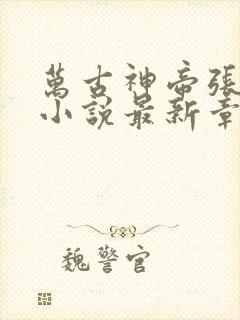 萬古神帝張
小說最新章
魏警官